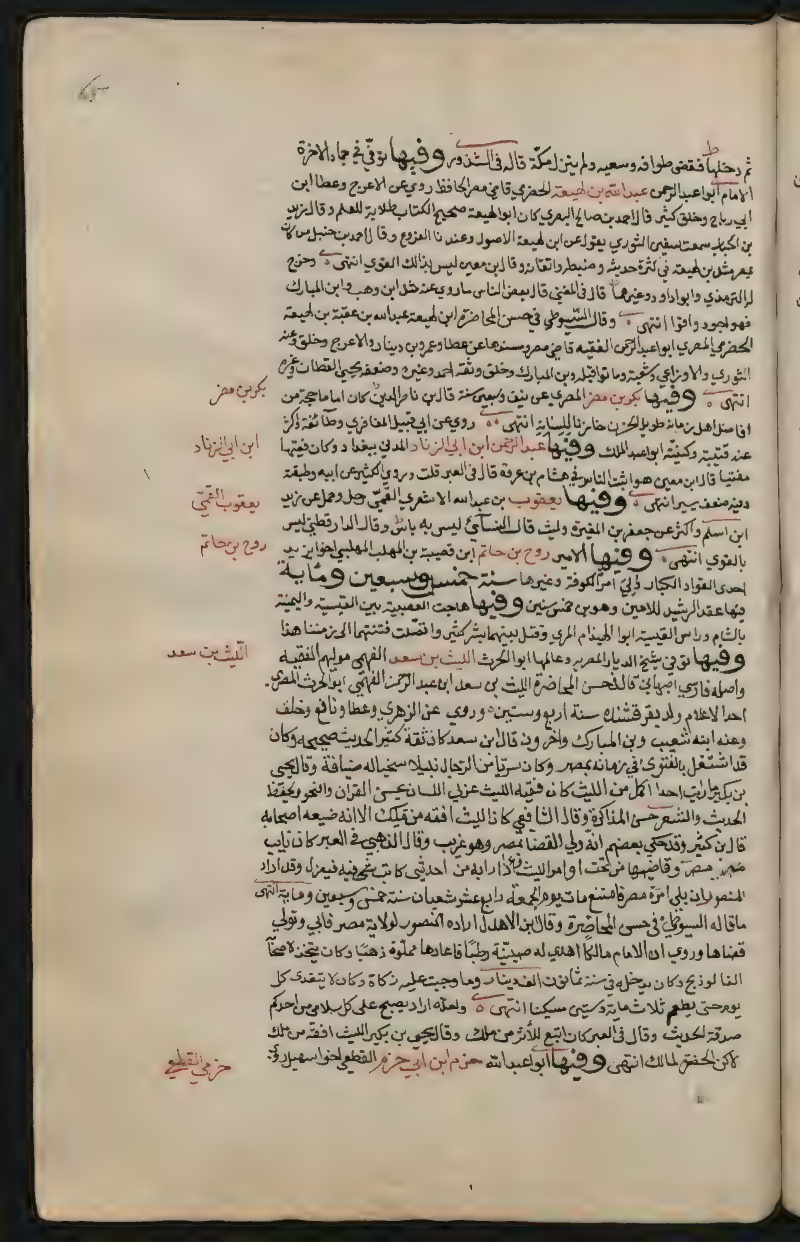 ثم دخلها فقضى طوافه وسعيه ولم ينزل مكة قاله في الشذور وفيها توفي في جماد الاخرة
الامام ابو عبد الرحمن عبد الله بن لهيعة الحضرمي قاضي مصر الحافظ روي عن الاعرج وعطا ابن
ابي رباح وخلق كثير قال احمد بن صالح المصري كان ابو لهيعة صحيح الكتاب طلابة للعلم وقال زيد
بن الحباب سمعت سفين الثوري يقول عن ابن لهيعة الاصول وعندنا الفروع وقال احمد بن حنبل من كان
بمصر مثل بن لهيعة في كثرة حديثه وضبطه واتقانه وقال بن معين ليس بذالك القوي انتهى وخرج
له الترمذي وابو داود وغيرهما قال في المغني قال بعض الناس ما روي عنه مثل ابن وهب وابن المبارك
فهو اجود واقوا انتهى وقال السيوطي في حسن المحاضرة ابن لهيعة عبد الله بن عقبة بن لهيعة
الحضرمي المصري ابو عبد الرحمن الفقيه قاضي مصر ومسندها عن عطا وعمرو بن دينار والاعرج وخلق وعنه
الثوري والاوزاعي وشعبة وماتوا قبله وبن المبارك وخلق وثقه احمد وغيره وضعفه يحيى القطان وغيره
انتهى وفيها بكر بن مضر المصري عن نيف وسبعين سنة قال بن ناصر الدين كان اماما حجة من
افاضل اهل زمانه طويل الحزن خازنا للسانه انتهى روي عن ابي قبيل المعافري وطائفة اكثر
عنه قتيبة وكنيته ابو عبد الملك وفيها عبد الرحمن ابن ابي الزناد المدني ببغداد وكان فقيها
مفتيا قال ابن معين هو اثبت الناس في هشام بن عروة قال في العبر قلت وروي الكثير عن ابيه وطبقته
وفيه ضعف يسير انتهى وفيها يعقوب بن عبد الله الاشعري القمي رحل وحمل عن زيد
ابن اسلم واكثر عن جعفر بن المغيرة وليث قال النسائي ليس به باس وقال الدارقطني ليس
بالقوي انتهى وفيها الامير روح بن حاتم ابن قبيصة بن المهلب المهلبي اخو يزيد
احدى القواد الكبار ولي امرة الكوفة وغيرها سنة خمس وسبعين ومائة
فيها عقد الرشيد للامين وهو بن خمس سنين وفيها هاجت العصبية بين القيسية واليمنية
بالشام وراس القيسية ابو الهيذام المري وقتل بينهما بشر كثير واتصلت فتنتهما الى زمننا هذا
وفيها توفي شيخ الديار المصرية وعالمها ابو الحرث الليث بن سعد الفهمي مولاهم الفقيه
واصله فارسي اصبهاني قال في حسن المحاضرة الليث بن سعد ابن عبد الرحمن الفهمي ابو الحرث المصري
احد الاعلام ولد بقرقشنده سنة اربع وستين وروي عن الزهري وعطا ونافع وخلف
وعنه ابنه شعيب وبن المبارك واخرون قال ابن سعد كان ثقة كثير الحديث صحيحه وكان
قد اشتغل بالفتوى في زمانه بمصر وكان سريا من الرجال نبيلا سخيا له ضيافة وقال يحيى
بن بكير ما رايت احدا اكمل من الليث كان فقيه الليث عزلي اللسان يحسن القران والنحو ويحفظ
الحديث والشعر حسن المذاكرة وقال الشافعي كان الليث افقه من مالك الا انه ضيعه اصحابه
قال بن كثير وقد حكي بعضهم انه ولي القضا بمصر وهو غريب وقال الذهبي في العبر كان نايب
مصر وقاضيها من تحت اوامر الليث واذا رابه من احد شي كاتب فيه فيعزل وقد اراد
المنصور ان يلي امرة مصر فامتنع مات يوم الجمعة رابع عشر شعبان سنة خمس وسبعين وماية انتهى
ما قاله السيوطي في حسن المحاضرة وقال بن الاهدل اراده المنصور لولاية مصر فابي وتولي
قضاها وروي ان الامام مالكا اهدي له صينية رطبا فاعادها مملوة ذهبا وكان يتخذ لاصحابه
الفالوذج وكان يدخله في سنة ثمانون الف دينار وما وجبت عليه زكاة وكان لا يتغدى كل
يوم حتى يطعم ثلاث ماية وستين مسكينا انتهى ولعله اراد يصبح على كل سلامي من احدكم
صدقة الحديث وقال في العبر كان اتبع للأثر من ملك وقال يحيى بن بكير الليث افقه من ملك
لاكن الحظوة لمالك انتهى وفيها ابو عبد الله حزم ابن ابي حزم القطعي اخو سهيل
بكر بن مضر
ابن ابي الزناد
يعقوب القمي
روح بن حاتم
الليث بن سعد
حزمي القطعي